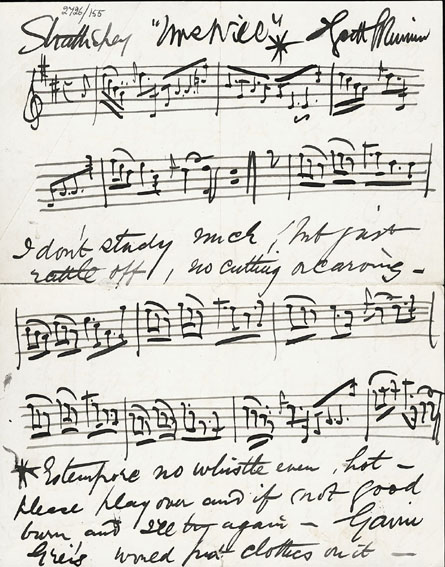 2926/155
Strathspey * Scott Skinner
I don't study much, but just
rattle off, no cutting or carving —
* Extempore no whistle even, hot —
please play over and if not good
burn and I'll try again — Gavin
Greig would put clothes on it —